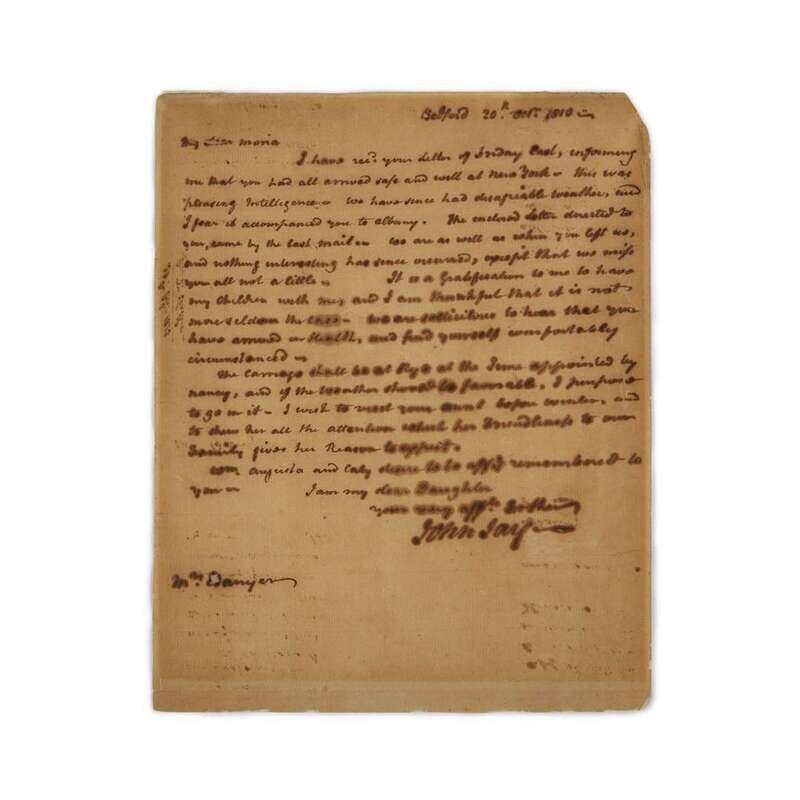 Bedford 20th Octr. 1810 —
My dear Maria
I have recd. your Letter of Friday last, informing
me that you had all arrived safe and well at New York — This was
pleasing Intelligence — We have since had disagreable weather, and
I fear it accompanied you to Albany. The enclosed Letter directed to
you, came by the last mail — We are as well as when you left us,
and nothing interesting has since occurred, except that we miss
you all not a little — It is a Gratification to me to have
my Children with me, and I am thankful that it is not
more seldom the case — We are sollicitous to hear that you
have arrived in Health, and find yourself comfortably
circumstanced —
The Carriage shall be at Rye at the Time appointed by
Nancy, and if the weather should be favorable, I purpose
to go in it — I wish to visit your Aunt before winter, and
to shew her all the attention which her Friendliness to our
Family gives her Reason to expect.
Wm Augusta and Caty desire to be affy. remembered to
you — I am my dear Daughter
your very affte. Father
John Jay
Mrs. Banyer